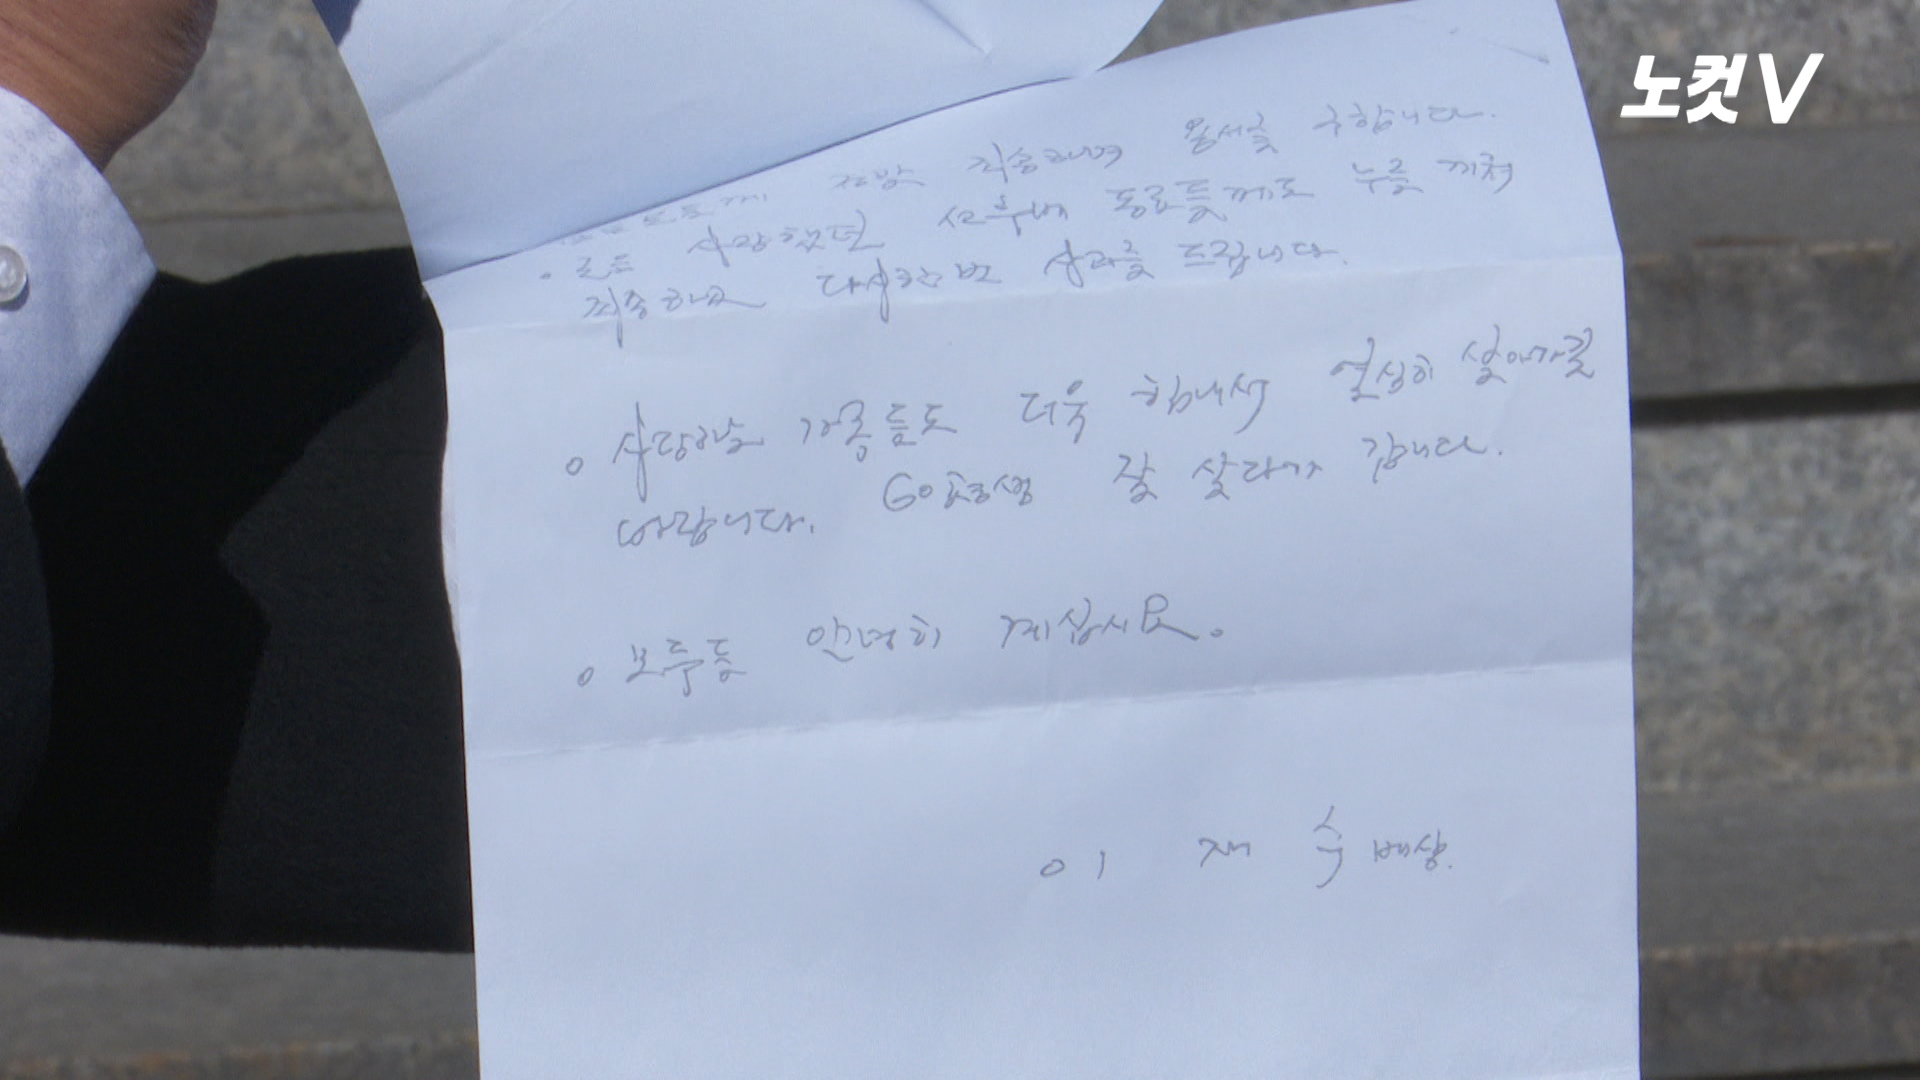 노컷V
정말 죄송하며 용서를 구합니다.
◦ 군을 사랑했던 선후배 동료들께도 누를 끼쳐
죄송하고 다시한번 사과를 드립니다.
◦ 사랑하는 가족들도 더욱 힘내서 열심히 살아가길
바랍니다. 60평생 잘 살다가 갑니다.
◦ 모두들 안녕히 계십시요.
이 재 수 배상.